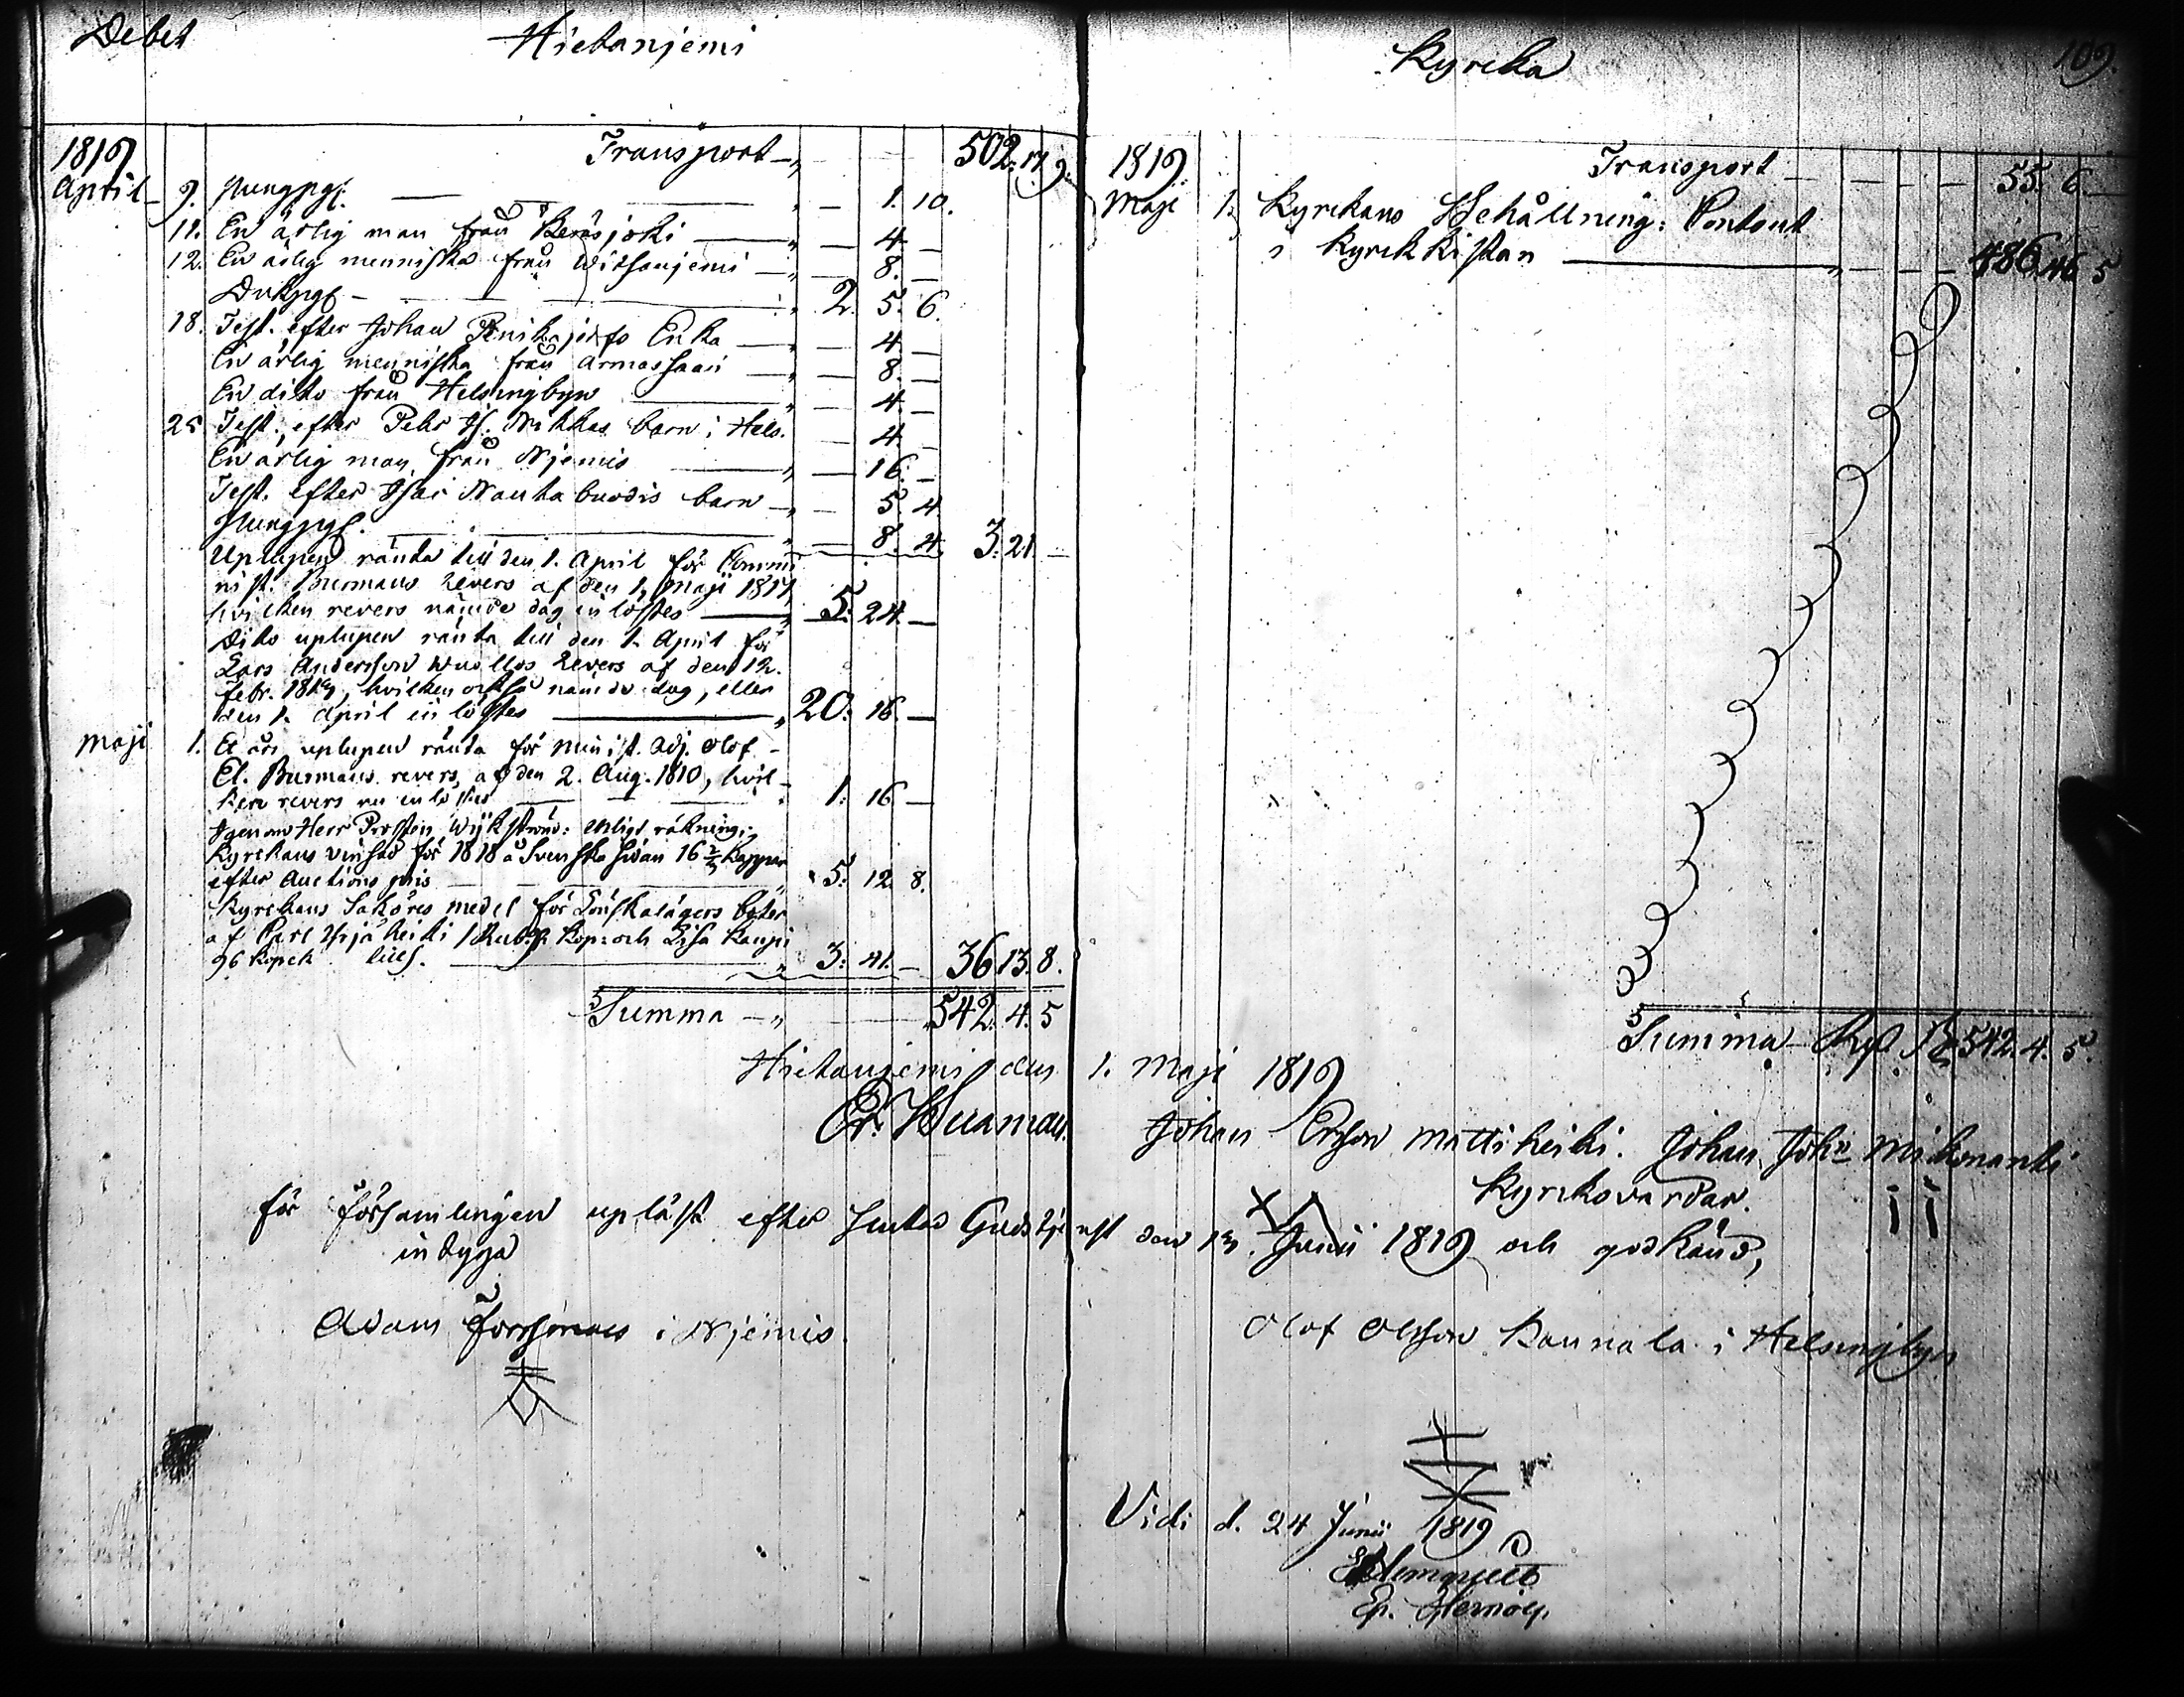 Debet Hietaniemi
1819 Transport 502. 17. 9.
April 9. pungpgr. 1. 10.
11. En ärlig man från Keräsjoki 4. —
12. En ärlig menniska från Witsaniemi 8. —
2. 5. 6.
18. Test. efter Johan Enka 4. —
En ärlig menniska från Armassaari 8. —
En dito från Helsingbyn 4. —
25 Test. efter Pehr barn i Hels. 4. —
En ärlig man från Niemis 16. —
Test. efter barn 5. 4
pungpgr. 8. 4. 3. 21. —
Uplupen ränta till den 1. April för Commi
nist. Burmans revers af den 1. Maji 1817,
hvilken revers nämde dag inlöstes 5. 24. —
Dito uplupen ränta till den 1. April för
Lars Andersson Wuollos revers af den 12.
febr. hvilken också nämde dag, eller
den 1. April inlöstes 20. 16. —
Maji 1. Et års uplupen ränta för Minist. Adj. Olof
El. Burmans revers af den 2. Aug. 1810, hvil-
ken revers nu inlöstes 1. 16. —
Igenom Herr Prosten Wijkström: enligt räkning;
Kyrckans för 1818 à Svenska 16 2/3 kappar
efter Auctions pris 5. 12. 8.
Kyrckans Saköres medel för böter
af Carl Yrjäheiki 1 Rub. kop: och Lisa Kaupi
96 kopek 3. 41. — 36. 13. 8.
Summa 542. 4. 5
Kyrcka 109.
1819 Transport 55. 6. —
Maji 1. Kyrckans Behållning: Contant
i Kyrckkistan 486. 46 5
Summa 542. 4. 5.
Hietaniemi den 1. Maji 1819
Er. Burman. Johan Ersson Mattiheiki. Johan Johs Mikonanti
Kyrckovärdar.
för församlingen upläst efter slutad Gudstjenst den Junii 1819 och godkänd,
intyga
Adam i Niemis. Olof Olsson Kannala i Helsingbyn
Vidi d. 24 Junii 1819
E Almquist
Ep. Hernös.